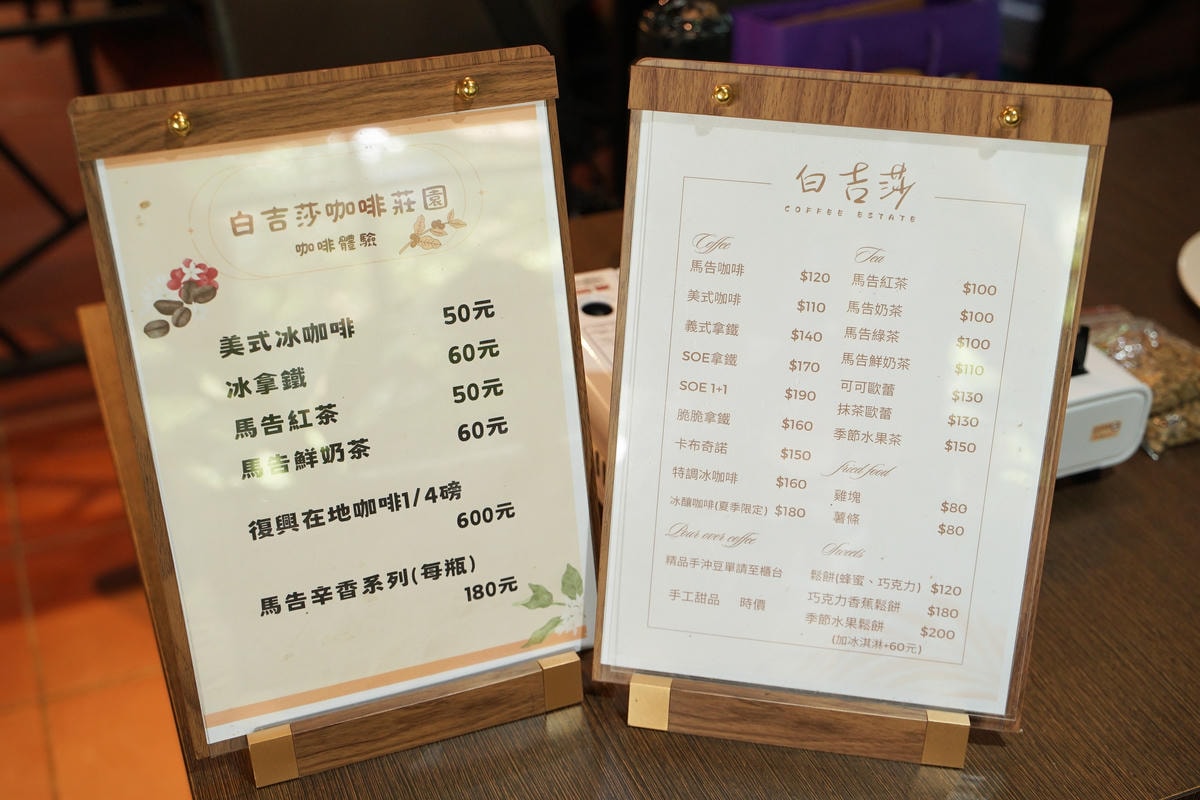 白吉莎咖啡莊園
咖啡體驗
美式冰咖啡 50元
冰拿鐵 60元
馬告紅茶 50元
馬告鮮奶茶 60元
復興在地咖啡1/4磅
600元
馬告辛香系列(每瓶)
180元
白吉莎
COFFEE ESTATE
Coffee
馬告咖啡 $120
美式咖啡 $110
義式拿鐵 $140
SOE拿鐵 $170
SOE 1+1 $190
脆脆拿鐵 $160
卡布奇諾 $150
特調冰咖啡 $160
冰釀咖啡(夏季限定) $180
Pour over coffee
精品手沖豆單請至櫃台
手工甜品 時價
Tea
馬告紅茶 $100
馬告奶茶 $100
馬告綠茶 $100
馬告鮮奶茶 $110
可可歐蕾 $130
抹茶歐蕾 $130
季節水果茶 $150
fried food
雞塊 $80
薯條 $80
Sweets
鬆餅(蜂蜜、巧克力) $120
巧克力香蕉鬆餅 $180
季節水果鬆餅 $200
(加冰淇淋+60元)